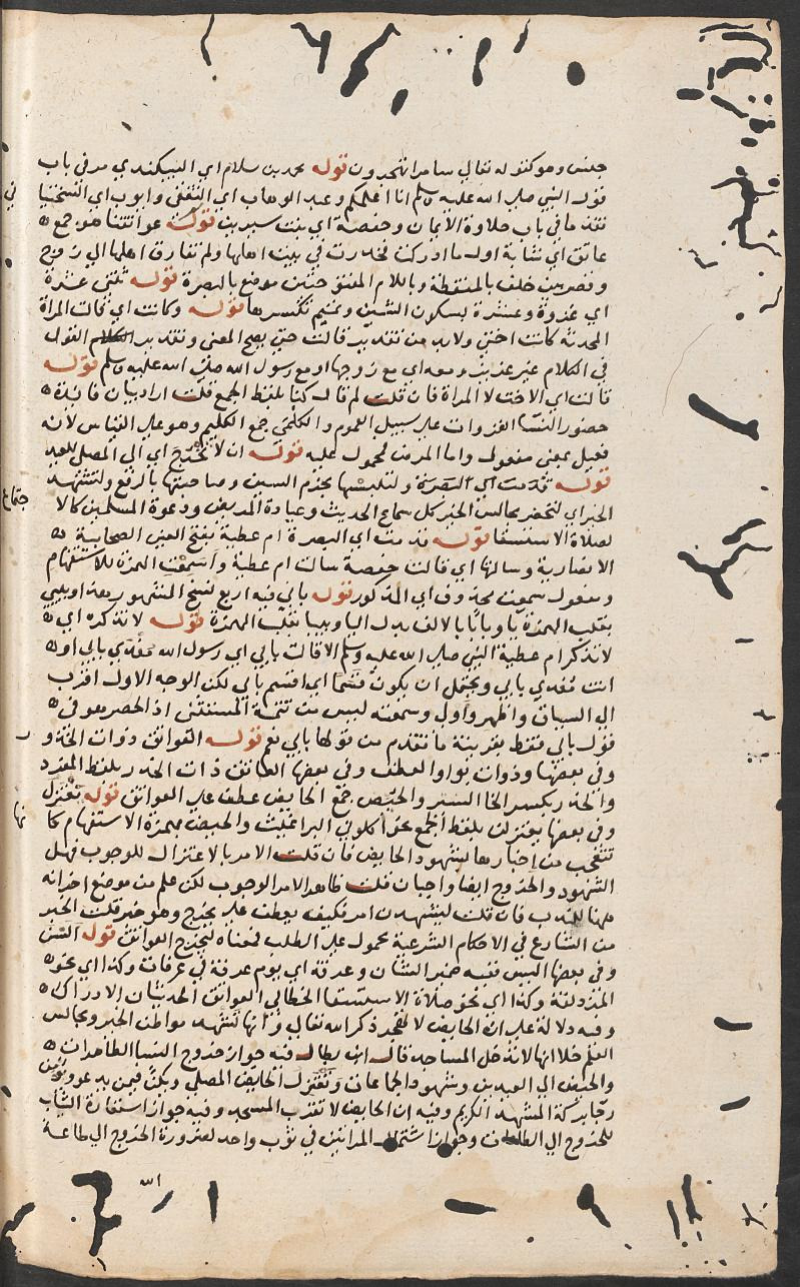 جنس وهو كقوله تعالى سامرا تهجرون قوله محمد بن سلام اي البيكندي مر في باب
قول النبي صلى الله عليه وسلم انا اعلمكم وعبد الوهاب اي الثقفي وايوب اي السختيا
تقدما في باب حلاوة الايمان وحفصة اي بنت سيرين قوله عواتقنا هو جمع
عاتق اي شابة اول ما ادركت فخدرت في بيت اهلها ولم تفارق اهلها الى زوج
وقصر بني خلف بالمنقطة وباللام المفتوحتين موضع بالبصرة قوله ثنتي عشرة
اي غزوة وعشرة بسكون الشين وتميم تكسرها قوله وكانت اي قالت المراة
المحدثة كانت اختي ولابد من تقدير قالت حتى يصح المعنى وتقدير القول
في الكلام غير عزيز ومعه اي مع زوجها او مع رسول الله صلى الله عليه وسلم قوله
قالت اي الاخت لا المراة فان قلت لم قال كنا بلفظ الجمع قلت اراد بيان فائدة
حضور النسا الغزوات على سبيل العموم والكلمى جمع الكليم وهو على القياس لانه
فعيل بمعنى مفعول واما المرضى فمحمول عليه قوله ان لا تخرج اي الى المصلى للعيد
قوله ولتلبسها بجزم السين وصاحبتها بالرفع ولتشهد
الخير اي لتحضر مجالس الخير كل سماع الحديث وعيادة المريض ودعوة المسلمين كالا
لصلاة الاستسقا قوله قدمت اي البصرة ام عطية بفتح العين الصحابية
الانصارية وسالتها اي قالت حفصة سالت ام عطية واسمعت الهمزة للاستفهام
ومفعول سمعت محذوف اي المذكور قوله بابي فيه اربع نسخ المشهور هذا وبيبي
بقلب الهمزة يا وبابا بالالف بدل اليا وبيبا بقلب الهمزة قوله لا تذكره اي
لا تذكر ام عطية النبي صلى الله عليه وسلم الا قالت بابي اي رسول الله مفدى بابي او
انت مفدى بابي ويحتمل ان يكون قسما اي اقسم بابي لكن الوجه الاول اقرب
الى السياق واظهر واولى وسمعته ليس من تتمة المستثنى اذ الحصر هو في
قول بابي فقط بقرينة ما تقدم من قولها بابي نعم قوله العواتق ذوات الخدو
وفي بعضها وذوات بواو العطف وفي بعضها العاتق ذات الخدر بلفظ المفرد
والخدر بكسر الخا الستر والحيض جمع الحايض عطف على العواتق قوله تعتزل
وفي بعضها يعتزلن بلفظ الجمع نحو اكلوني البراغيث والحيض بهمزة الاستفهام كا
تتعجب من اخبارها بشهود الحايض فان قلت الامر بالاعتزال للوجوب فهل
الشهود والخروج ايضا واجبان قلت ظاهر الامر الوجوب لكن علم من موضع اخر انه
ههنا للندب فان قلت ليشهدن امر فكيف يعطف على يخرج وهو خبر قلت الخبر
من الشارع في الاحكام الشرعية محمول على الطلب فمعناه لتخرج العواتق قوله اليس
وفي بعضها اليس فيه ضمير الشان وعرفة اي يوم عرفة في عرفات وكذا اي نحو
المزدلفة وكذا اي نحو صلاة الاستسقا الخطابي العواتق الحديثان الادراك
وفيه دلالة على ان الحايض لا تهجر ذكر الله تعالى وانها تشهد مواطن الخير ومجالس
العلم خلا انها لا تدخل المساجد قال ابن بطال فيه جواز خروج النسا الطاهرات
والحيض الى العيدين وشهود الجماعات وتعتزل الحايض المصلى ويكن فيمن يدعو ويؤمن
رجا بركة المشهد الكريم وفيه ان الحايض لا تقرب المسجد وفيه جواز استعارة الثياب
للخروج الى الطاعات وجواز اشتمال المراتين في ثوب واحد لضرورة الخروج الى طاعة